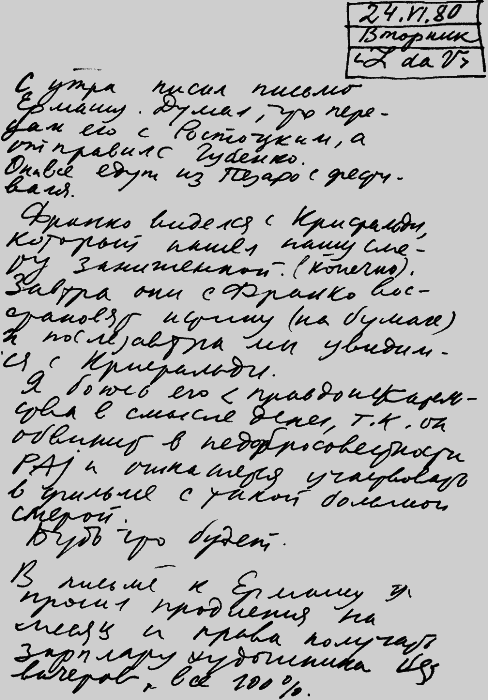 24.VI.80
Вторник
L da V.
С утра писал письмо
Ермашу. Думал, что пере-
дам его с Ростоцким, а
отправил с Губенко.
Они все едут из Пезаро с фести-
валя.
Франко виделся с Кристальди,
который нашел нашу сме-
ту заниженной. (Конечно).
Завтра они с Франко вос-
становят истину (на бумаге)
и послезавтра мы увидим-
ся с Кристальди.
Я боюсь его
в смысле денег, т.к. он
обвинит в недобросовестности
РАИ и откажется участвовать
в фильме с такой большой
сметой.
Будь что будет.
В письме к Ермашу я
просил продления на
месяц и права получать
зарплату художника без
вычетов, все 100%.